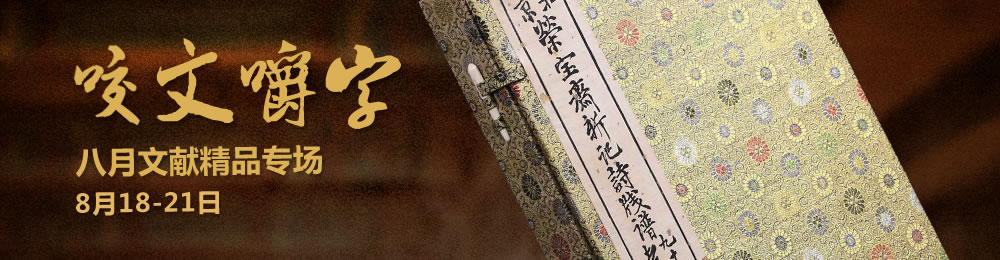 咬文嚼字
八月文献精品专场
8月18-21日
京榮宝齋新记詩牋谱